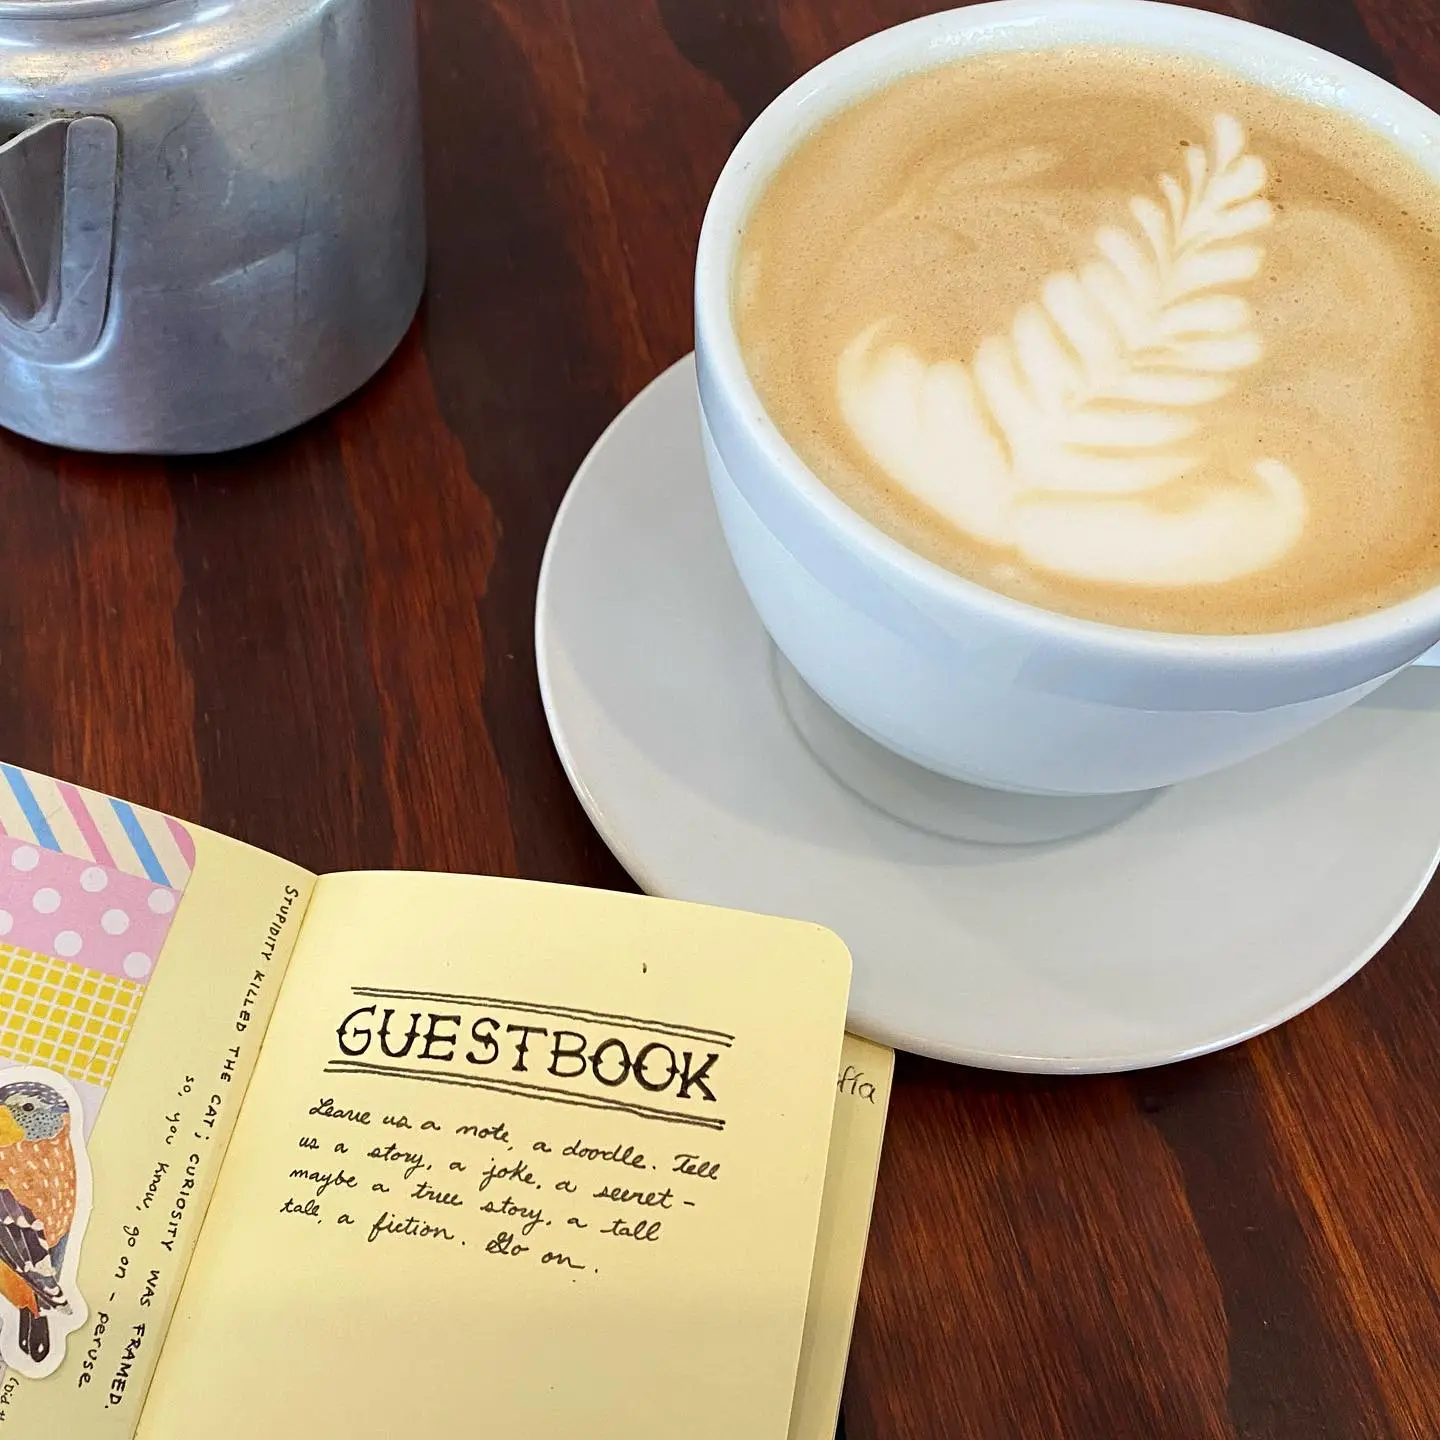 STUPIDITY KILLED THE CAT; CURIOSITY WAS FRAMED.
so, you know, go on - peruse
GUESTBOOK
Leave us a note, a doodle. Tell
us a story, a joke, a secret -
maybe a true story, a tall
tale, a fiction. Go on.